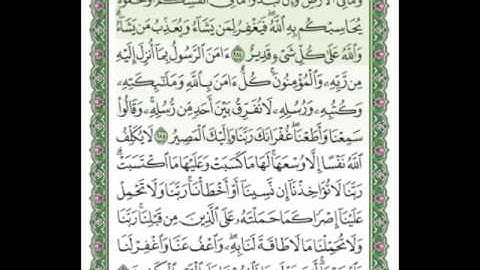 وَمَا فِى ٱلْأَرْضِ وَإِن تُبْدُوا۟ مَا فِىٓ أَنفُسِكُمْ أَوْ تُخْفُوهُ
يُحَاسِبْكُم بِهِ ٱللَّهُ فَيَغْفِرُ لِمَن يَشَآءُ وَيُعَذِّبُ مَن يَشَآءُ
وَٱللَّهُ عَلَىٰ كُلِّ شَىْءٍ قَدِيرٌ ٢٨٤ ءَامَنَ ٱلرَّسُولُ بِمَآ أُنزِلَ إِلَيْهِ
مِن رَّبِّهِۦ وَٱلْمُؤْمِنُونَ كُلٌّ ءَامَنَ بِٱللَّهِ وَمَلَـٰٓئِكَتِهِۦ
وَكُتُبِهِۦ وَرُسُلِهِۦ لَا نُفَرِّقُ بَيْنَ أَحَدٍ مِّن رُّسُلِهِۦ وَقَالُوا۟
سَمِعْنَا وَأَطَعْنَا غُفْرَانَكَ رَبَّنَا وَإِلَيْكَ ٱلْمَصِيرُ ٢٨٥ لَا يُكَلِّفُ
ٱللَّهُ نَفْسًا إِلَّا وُسْعَهَا لَهَا مَا كَسَبَتْ وَعَلَيْهَا مَا ٱكْتَسَبَتْ
رَبَّنَا لَا تُؤَاخِذْنَآ إِن نَّسِينَآ أَوْ أَخْطَأْنَا رَبَّنَا وَلَا تَحْمِلْ
عَلَيْنَآ إِصْرًا كَمَا حَمَلْتَهُۥ عَلَى ٱلَّذِينَ مِن قَبْلِنَا رَبَّنَا
وَلَا تُحَمِّلْنَا مَا لَا طَاقَةَ لَنَا بِهِۦ وَٱعْفُ عَنَّا وَٱغْفِرْ لَنَا